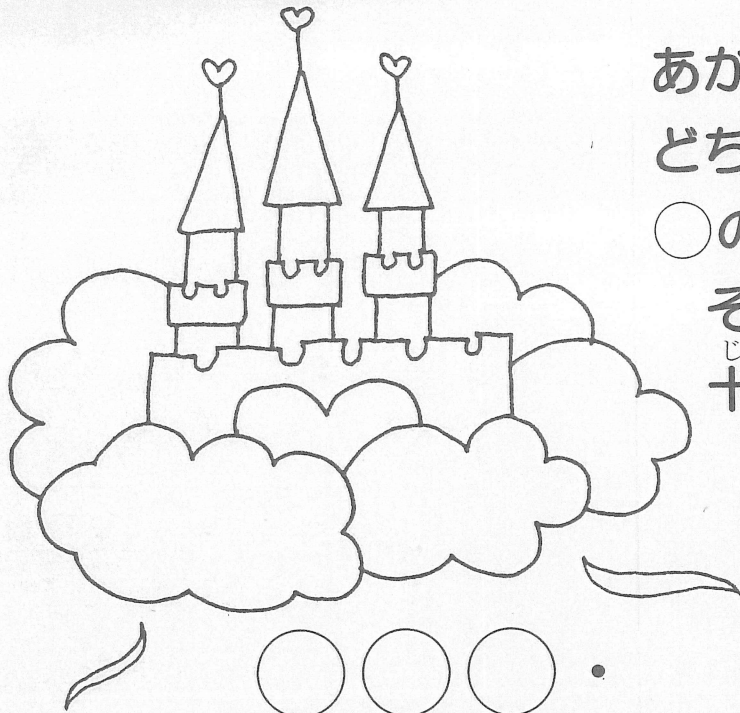 あか
どち
○の
そ
じ
十